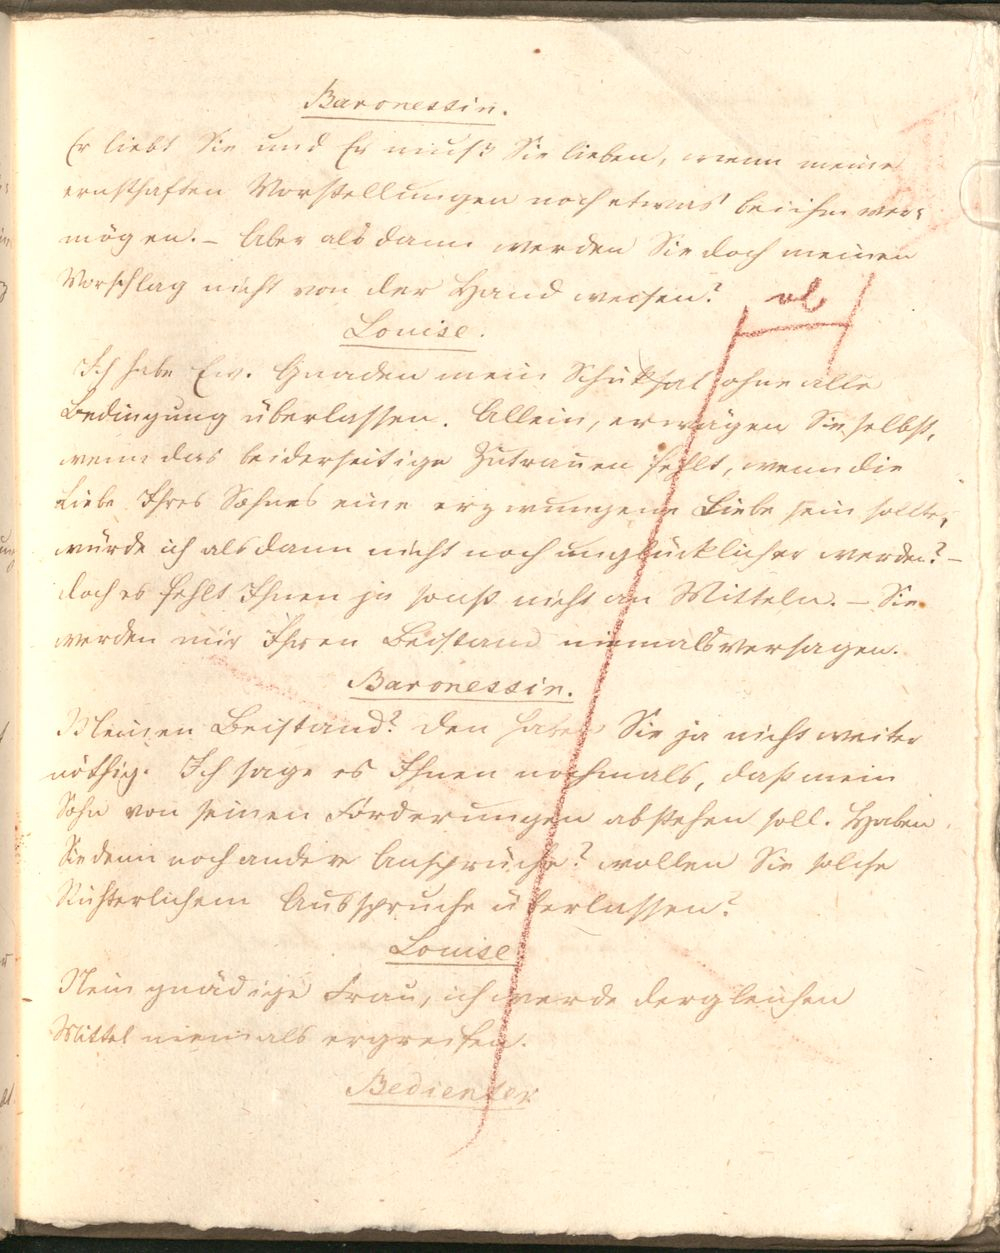 Baronessin.
Er liebt Sie und Er muß Sie lieben, wenn meine
ernsthaften Vorstellungen noch etwas bei ihm ver⸗
mögen. – Aber alsdann werden Sie doch meinen
Vorschlag nicht von der Hand weisen?
Louise.
Ich habe Ew. Gnaden mein Schiksal ohne alle
Bedingung überlassen. Allein, erwägen Sie selbst,
wenn das beiderseitige Zutrauen fehlt, wenn die
Liebe Ihres Sohnes eine erzwungene Liebe sein sollte,
würde ich alsdann nicht noch unglücklicher werden? –
doch es fehlt Ihnen ja sonst nicht an Mitteln. – Sie
werden mir Ihren Beistand niemals versagen.
Baronessin.
Meinen Beistand? den haben Sie ja nicht weiter
nöthig. Ich sage es Ihnen nochmals, daß mein
Sohn von seinen Förderungen abstehen soll. Haben
Sie denn noch andere Ansprüche? wollen Sie solche
Richterlichem Ausspruche überlassen?
Louise
Nein gnädige Frau, ich werde dergleichen
Mittel niemals ergreifen.
Bedienter